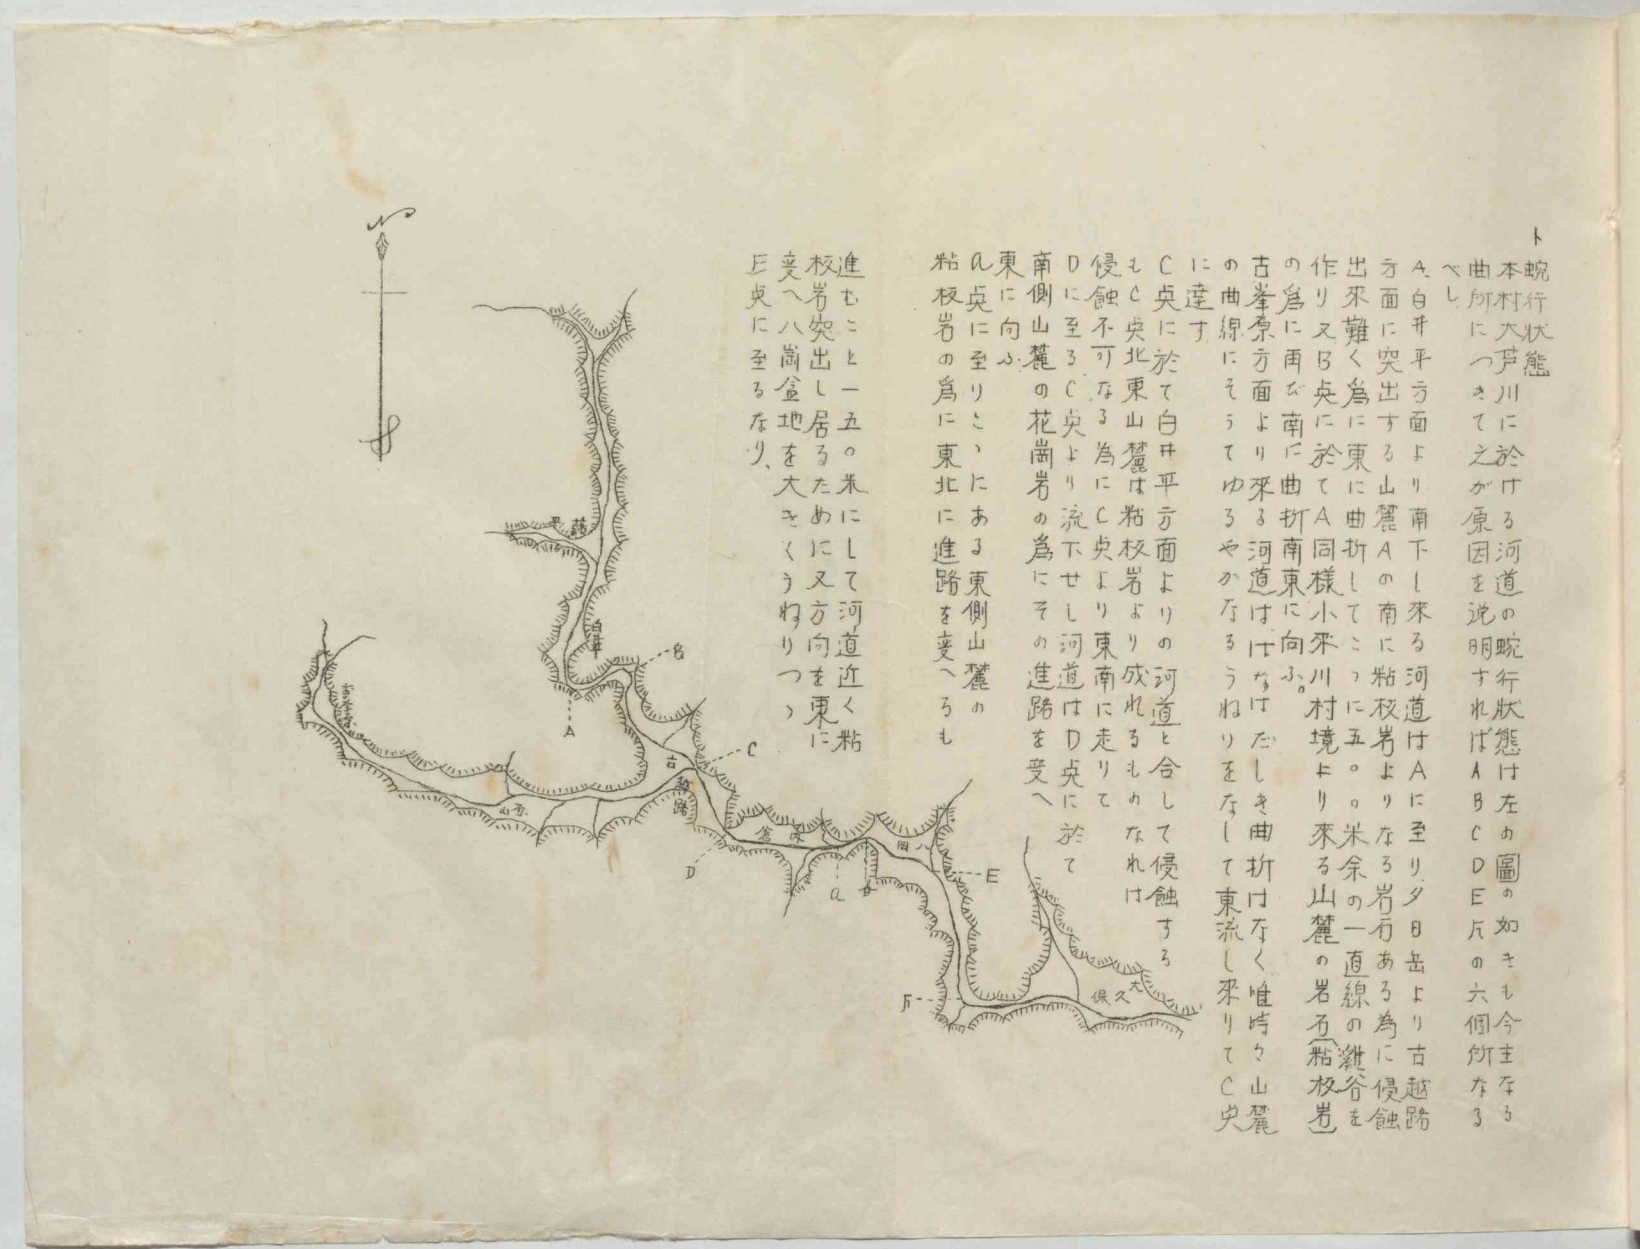 ト 蜿行状態
本村大芦川に於ける河道の蜿行狀態は左の圖の如きも今主なる
曲所につきて之が原因を説明すればABCDE凡の六個所なる
べし
A、白井平方面より南下し來る河道はAに至り夕日岳より古越路
方面に突出する山麓Aの南に粘板岩よりなる岩石ある為に侵蝕
出來難く為に東に曲折してこゝに五〇〇米余の一直線の谷を
作り又B点に於てA同様小來川村境より來る山麓の岩石(粘板岩)
の為に再び南に曲折南東に向ふ。
古峯原方面より來る河道ははなはだしき曲折はなく唯時々山麓
の曲線にそうてゆるやかなるうねりをなして東流し來りてC点
に達す
C点に於て白井平方面よりの河道と合して侵蝕する
もC点北東山麓は粘板岩より成れるものなれは
侵蝕不可なる為にC点より東南に走りて
Dに至るC点より流下せし河道はD点に於て
南側山麓の花崗岩の為にその進路を変へ
東に向ふ
a点に至りこゝにある東側山麓の
粘板岩の為に東北に進路を変へるも
進むこと一五〇米にして河道近く粘
板岩突出し居るために又方向を東に
変へ八岡盆地を大きくうねりつゝ
E点に至るなり、
N
S
平
白井平
B
A
古峯原
C
古越路
D
a
b
八岡
E
大久保